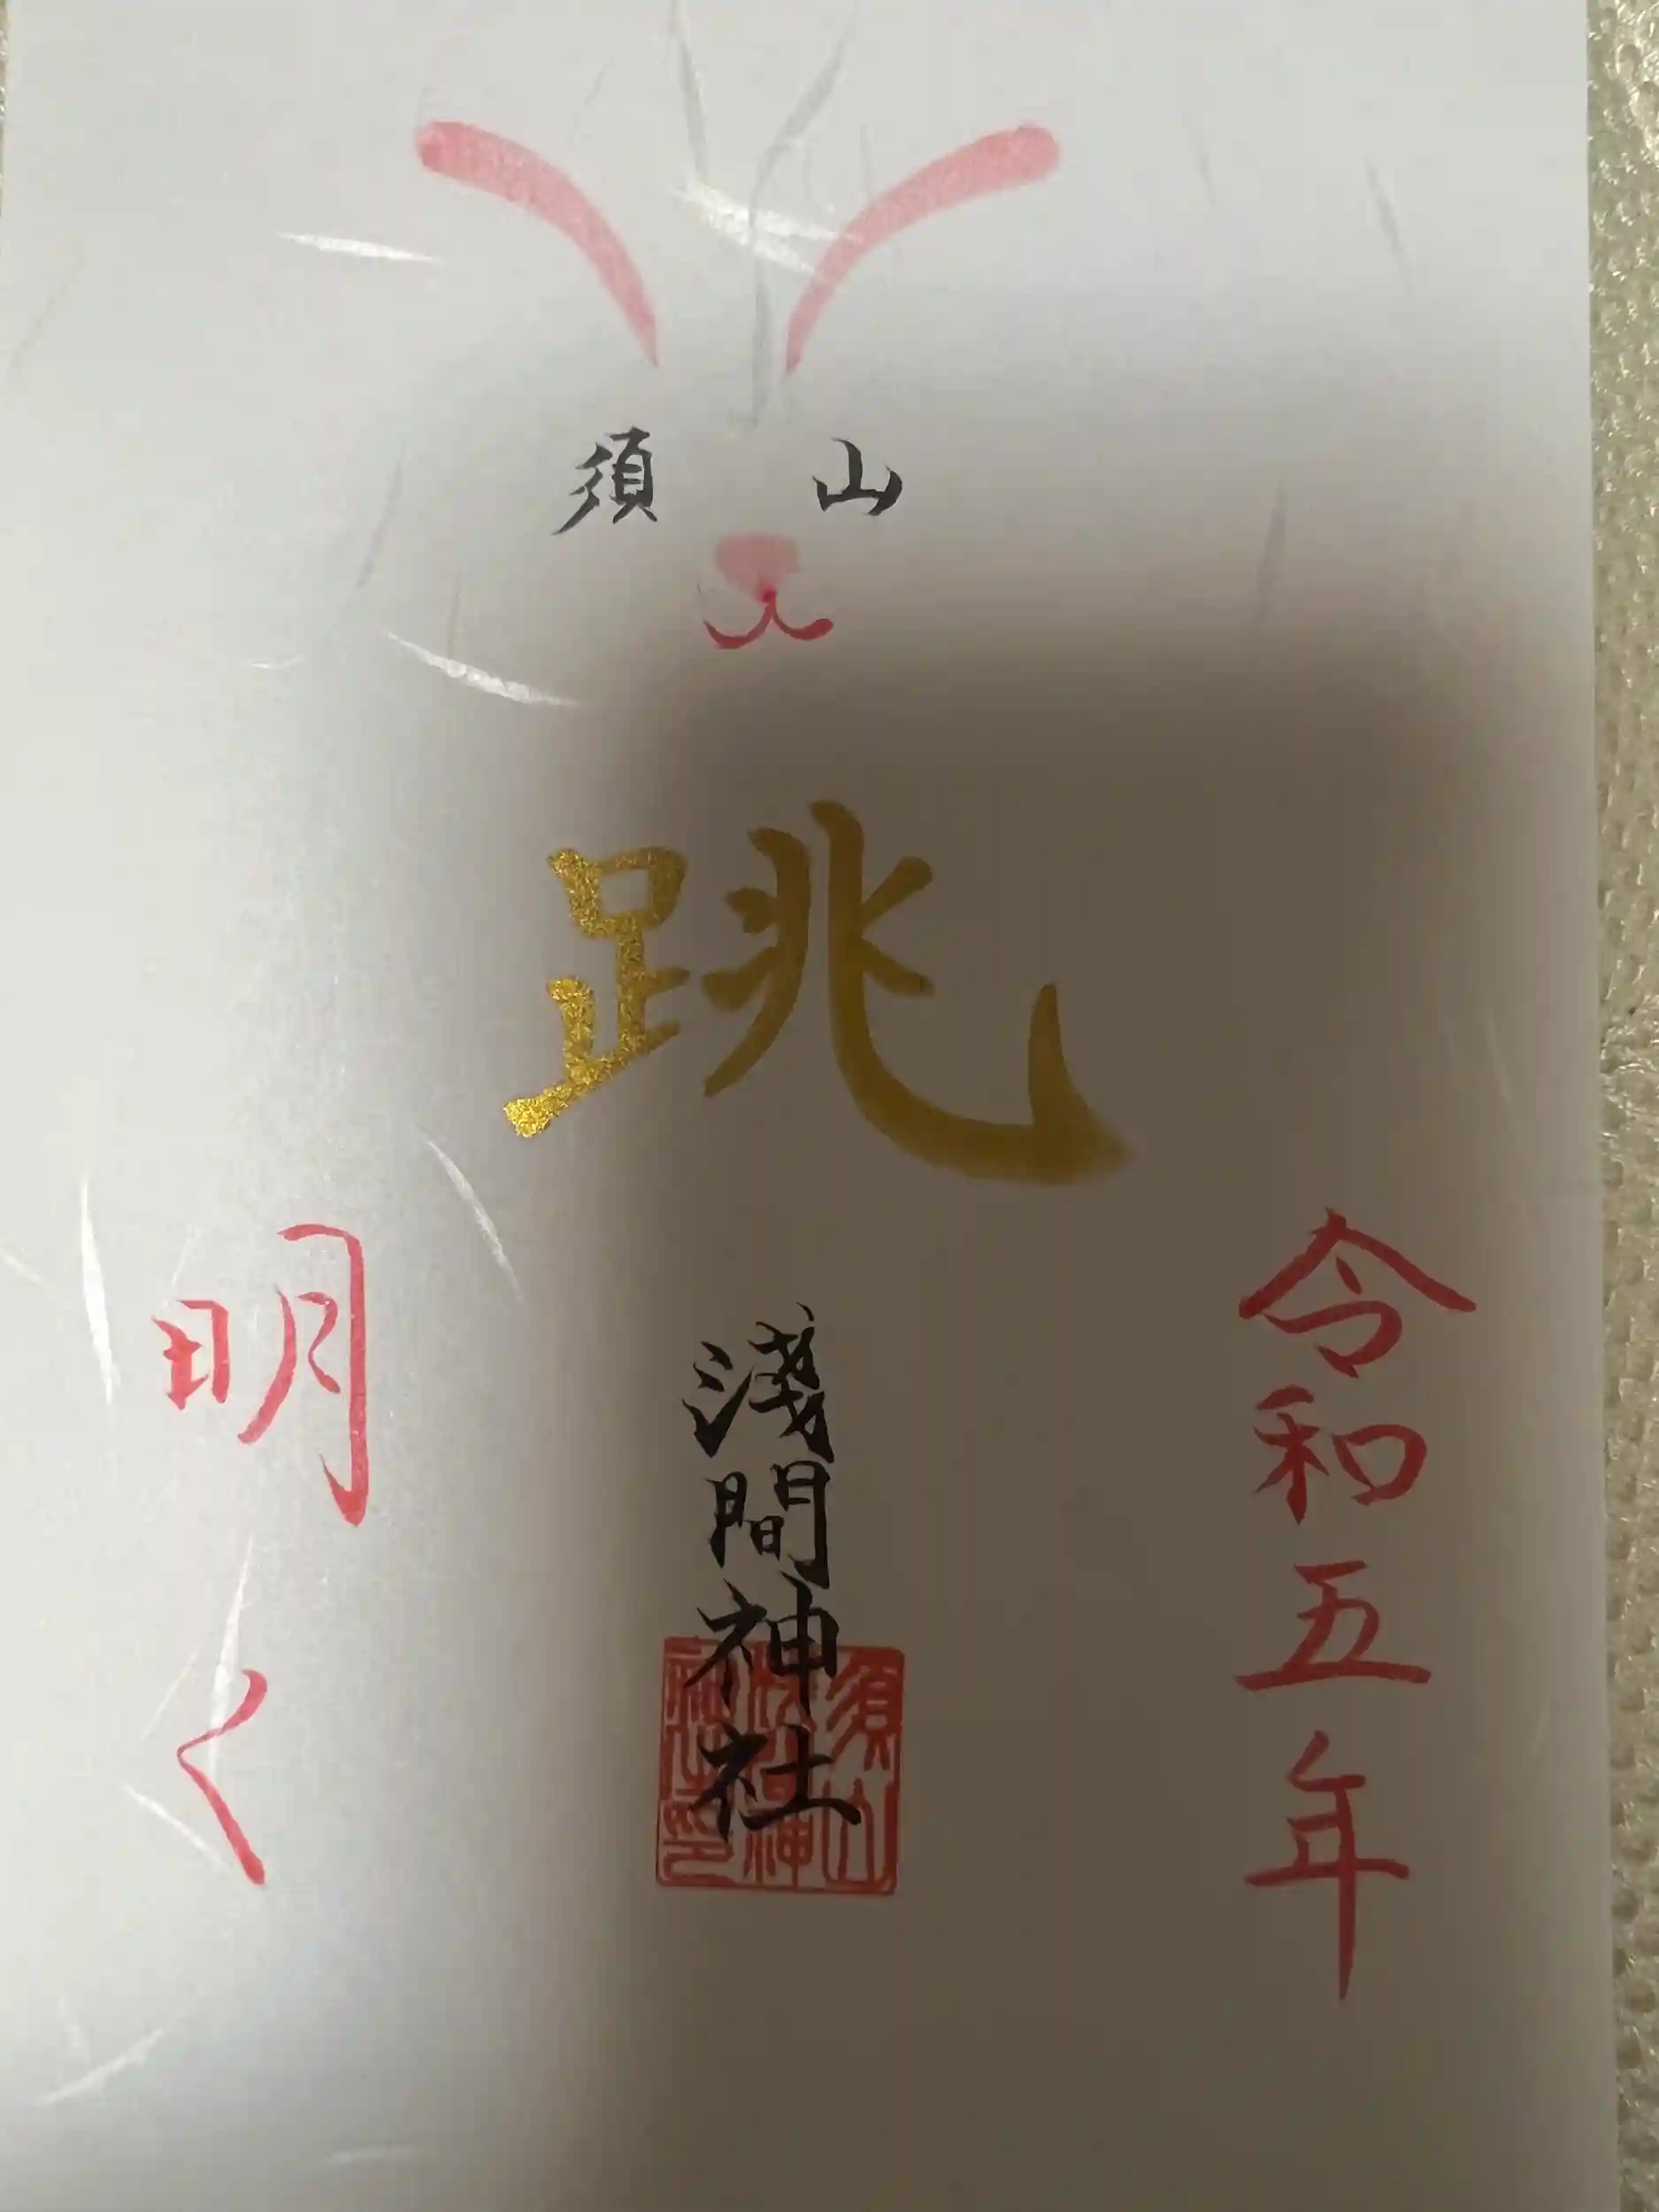 須山
跳
令和五年
淺間神社
須山
淺間神
社之印
明く